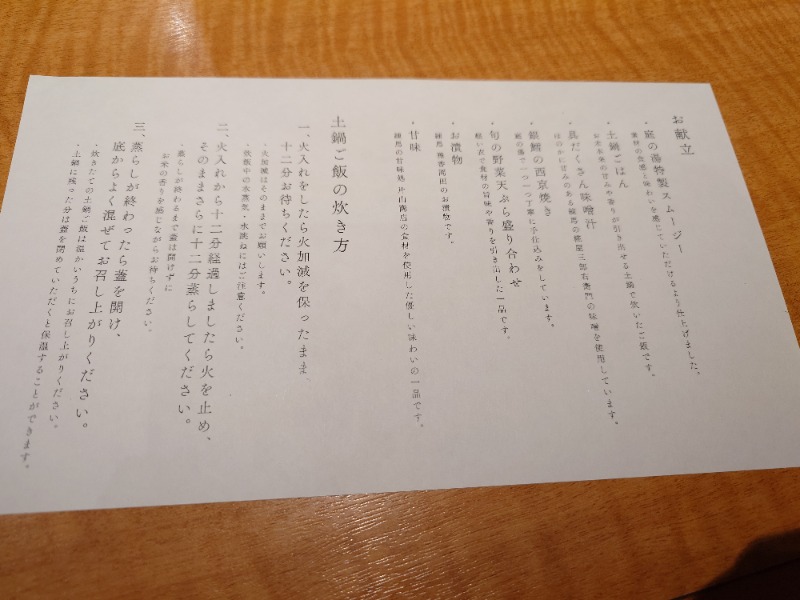 お献立
・庭の湯特製スムージー
素材の食感と味わいを感じていただけるよう仕上げました。
・土鍋ごはん
お米本来の甘みや香りが引き出せる土鍋で炊いたご飯です。
・具だくさん味噌汁
ほのかに甘みのある練馬の糀屋三郎右衛門の味噌を使用しています。
・銀鱈の西京焼き
庭の湯で一つ一つ丁寧に手仕込みをしています。
・旬の野菜天ぷら盛り合わせ
軽い衣で食材の旨味や香りを引き出した一品です。
・お漬物
練馬 のお漬物です。
・甘味
練馬の甘味処 片山商店の食材を使用した優しい味わいの一品です。
土鍋ご飯の炊き方
一、火入れをしたら火加減を保ったまま
十二分お待ちください。
・火加減はそのままでお願いします。
・炊飯中の水蒸気・水跳ねにはご注意ください。
二、火入れから十二分経過しましたら火を止め、
そのままさらに十二分蒸らしてください。
・蒸らしが終わるまで蓋は開けずに
お米の香りを感じながらお待ちください。
三、蒸らしが終わったら蓋を開け、
底からよく混ぜてお召し上がりください。
・炊きたての土鍋ご飯は温かいうちにお召し上がりください。
・土鍋に残った分は蓋を閉めていただくと保温することができます。